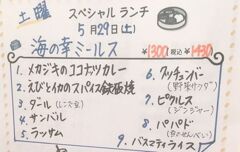 土曜
スペシャル ランチ
5月29日(土)
海の幸ミールス
¥1300 税込 ¥1430
1. メカジキのココナッツカレー
2. えびといかのスパイス鉄板焼
3. ダール(レンズ豆)
4. サンバル
5. ラッサム
6. クチュンバー
(野菜サラダ)
7. ピクルス
(ジンジャー)
8. パパド
(豆のせんべい)
9. バスマティライス